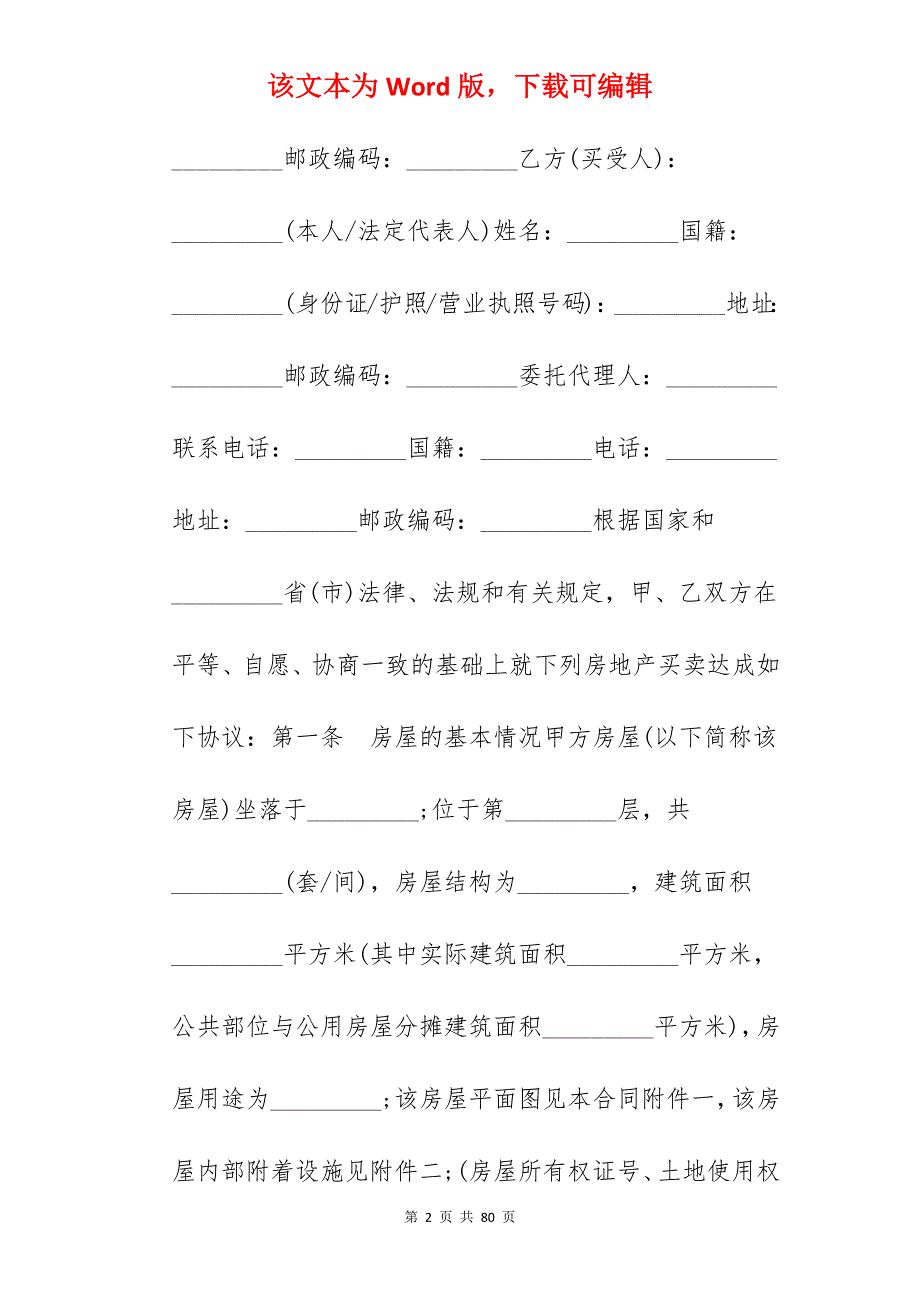 该文本为 Word 版，下载可编辑
_________邮政编码：_________乙方(买受人)：
_________(本人/法定代表人)姓名：_________国籍：
_________(身份证/护照/营业执照号码)：_________地址：
_________邮政编码：_________委托代理人：_________
联系电话：_________国籍：_________电话：_________
地址：_________邮政编码：_________根据国家和
_________省(市)法律、法规和有关规定，甲、乙双方在
平等、自愿、协商一致的基础上就下列房地产买卖达成如
下协议：第一条　房屋的基本情况甲方房屋(以下简称该
房屋)坐落于_________;位于第_________层，共
_________(套/间)，房屋结构为_________，建筑面积
_________平方米(其中实际建筑面积_________平方米，
公共部位与公用房屋分摊建筑面积_________平方米)，房
屋用途为_________;该房屋平面图见本合同附件一，该房
屋内部附着设施见附件二;(房屋所有权证号、土地使用权
第 2 页 共 80 页